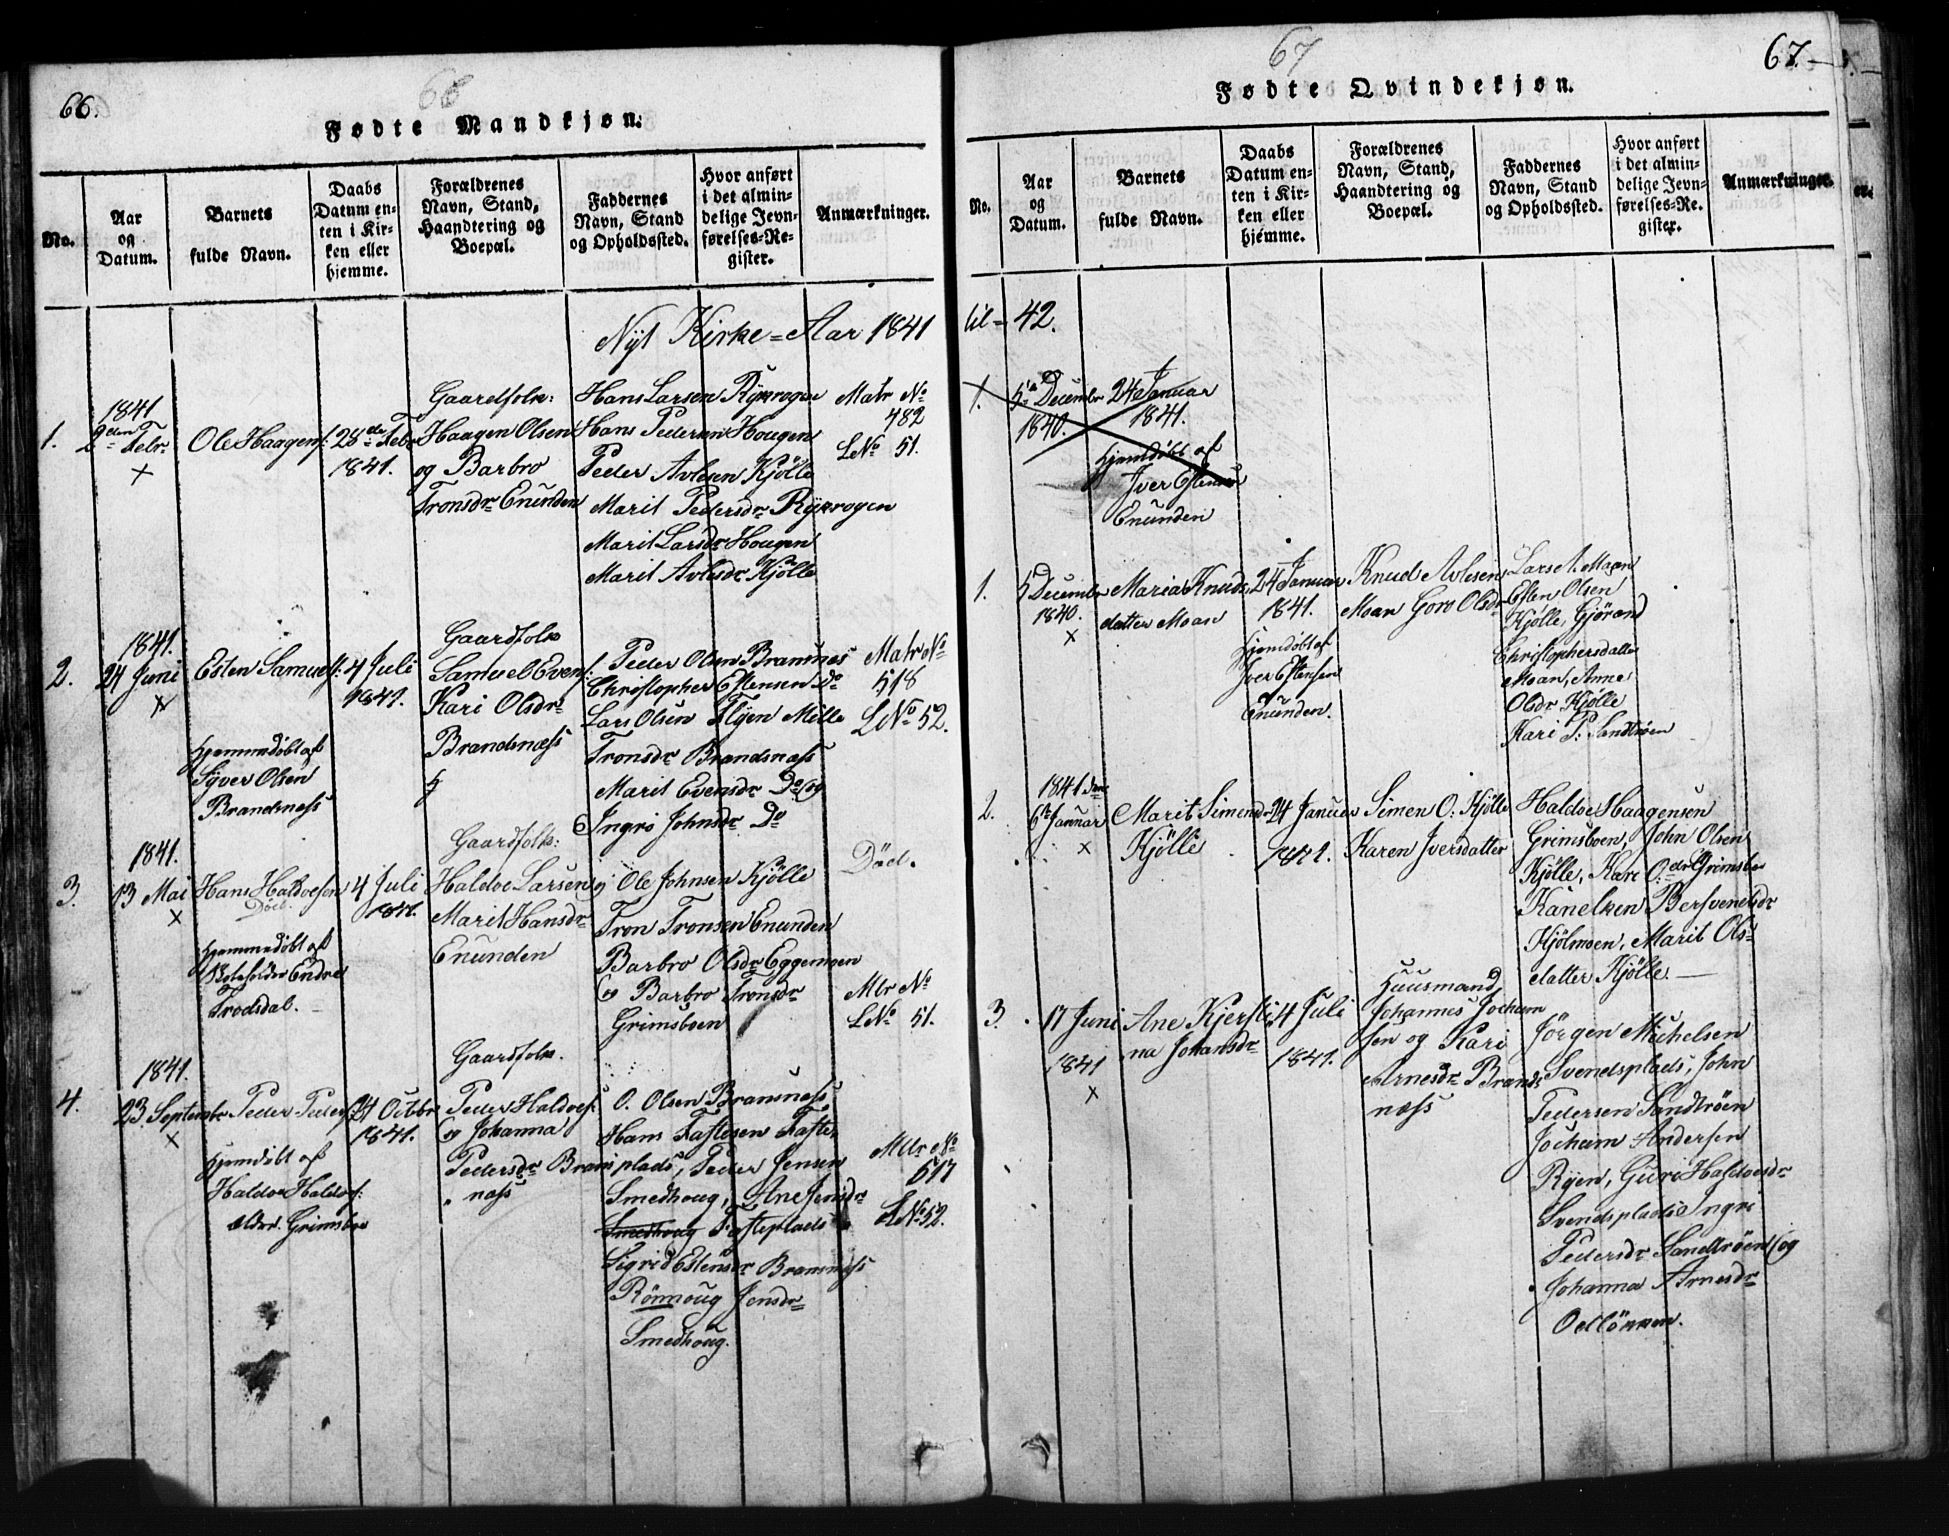 66.
66
Fødte Mandkjøn.
No.
Aar
og
Datum.
Barnets
fulde Navn.
Daabs
Datum en-
ten i Kir-
ken eller
hjemme.
Forældrenes
Navn, Stand,
Haandtering og
Boepæl.
Faddernes
Navn, Stand
og Opholdssted.
Hvor anført
i det almin-
delige Jevn-
førelses-Re-
gister.
Anmærkninger.
Nyt Kirke-Aar 1841
1.
1841
2den Febr.
×
Ole Haagens:
28de Febr
1841.
Gaardfolk:
Haagen Olsen
og Barbro
Tronsdr Enunden
Hans Larsen Ryxrogen
Hans Pedersen Hougen
Peder Avlesen Kjölle
Marit Pedersdr Ryxrogen
Marit Larsdr Hougen
Marit Avlesdr Kjölle
Matr No
482
LNo 51.
2.
1841.
24 Juni
×
Esten Samuels:
Hjemmedöbt af
Syver Olsen
Brandsnæss
4 Juli
1841.
Gaardfolk
Samuel Evens:
Kari Olsdr
Brandsnæss
Peder Olsen Bramnes
Christopher Estensen Do
Lars Olsen Flyen Mille
Tronsdr Brandsnæss
Marit Evensdr Do og
Ingri Johnsdr Do
Matr No
518
LNo 52.
3.
1841.
13 Mai
×
Hans Haldoesen
Död.
Hjemmedöbt af
Endre
Trodsdal.
4 Juli
1841.
Gaardfolk:
Haldoe Larsen og
Marit Hansdr
Enunden
Ole Johnsen Kjölle
Tron Tronsen Enunden
Barbro Olsdr Eggemoen
og Barbro Tronsdr
Grimsboen
Död.
Mtr No
LNo 51.
4.
1841.
23 Septembr
×
Peder Peders:
Hjemdöbt af
Haldoe Haldoes:
ældre. Grimsboe
24 Octbr
1841.
Gaardfolk.
Peder Haldoes:
og Johanna
Pedersdr Bram
næss
O. Olsen Bramnæss
Hans Fastesen Faste
plads, Peder Jensen
Smedhoug, Ane Jensdr
Smedhoug Fasteplads
Sigrid Estensdr Bramnæss
Rönnoug Jensdr
Smedhoug.
Mtr No
517
LNo 52.
67
67.
Fødte Qvindekjøn.
No.
Aar
og
Datum.
Barnets
fulde Navn.
Daabs
Datum en-
ten i Kir-
ken eller
hjemme.
Forældrenes
Navn, Stand,
Haandtering og
Boepæl.
Faddernes
Navn, Stand
og Opholdssted.
Hvor anført
i det almin-
delige Jevn-
førelses-Re-
gister.
Anmærkninger.
til - 42.
1.
5te December
1840.
24 Januar
1841.
Hjemdöbt af
Iver Estensen
Enunden
1.
5 December
1840.
×
Maria Knuds
datter Moan
24 Januar
1841.
Hjemdöbt af
Iver Estensen
Enunden.
Knud Avlesen
Moan Goro Olsdr
Lars A. Moan
Esten Olsen
Kjölle, Gjörand
Christophersdatter
Moan, Anne
Olsdr Kjölle
Kari P. Sandtröen
2.
1841 den
6te Januar
×
Marit Simensdr
Kjölle
24 Januar
1841.
Simen O. Kjölle
Karen Iversdatter
Haldoe Haagensen
Grimsboen, John Olsen
Kjölle, Kari O.dr Grimsboe
Kanelken Bersvendsdr
Kjölmoen, Marit Ols-
datter Kjölle.
3.
17 Juni
1841
×
Ane Kjersti,
na Johansdr
4 Juli
1841.
Huusmand
Johannes Jochum
sen og Kari
Arnesdr Brands
næss
Jörgen Michelsen
Svendsplads, John
Pedersen Sandtröen
Jochum Andersen
Ryen, Guri Haldoesdr
Svendsplads Ingri
Pedersdr Sandtröen og
Johanna Arnesdr
Odlönnen.